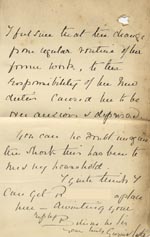 I feel sure that the change
from regular routine of her
former work, to the
responsibility of her new
duties caused her to be
over anxious & depressed
You can no doubt imagine
the shock this has been to
me & my household
I quite think I
can get
her - awaiting your
reply